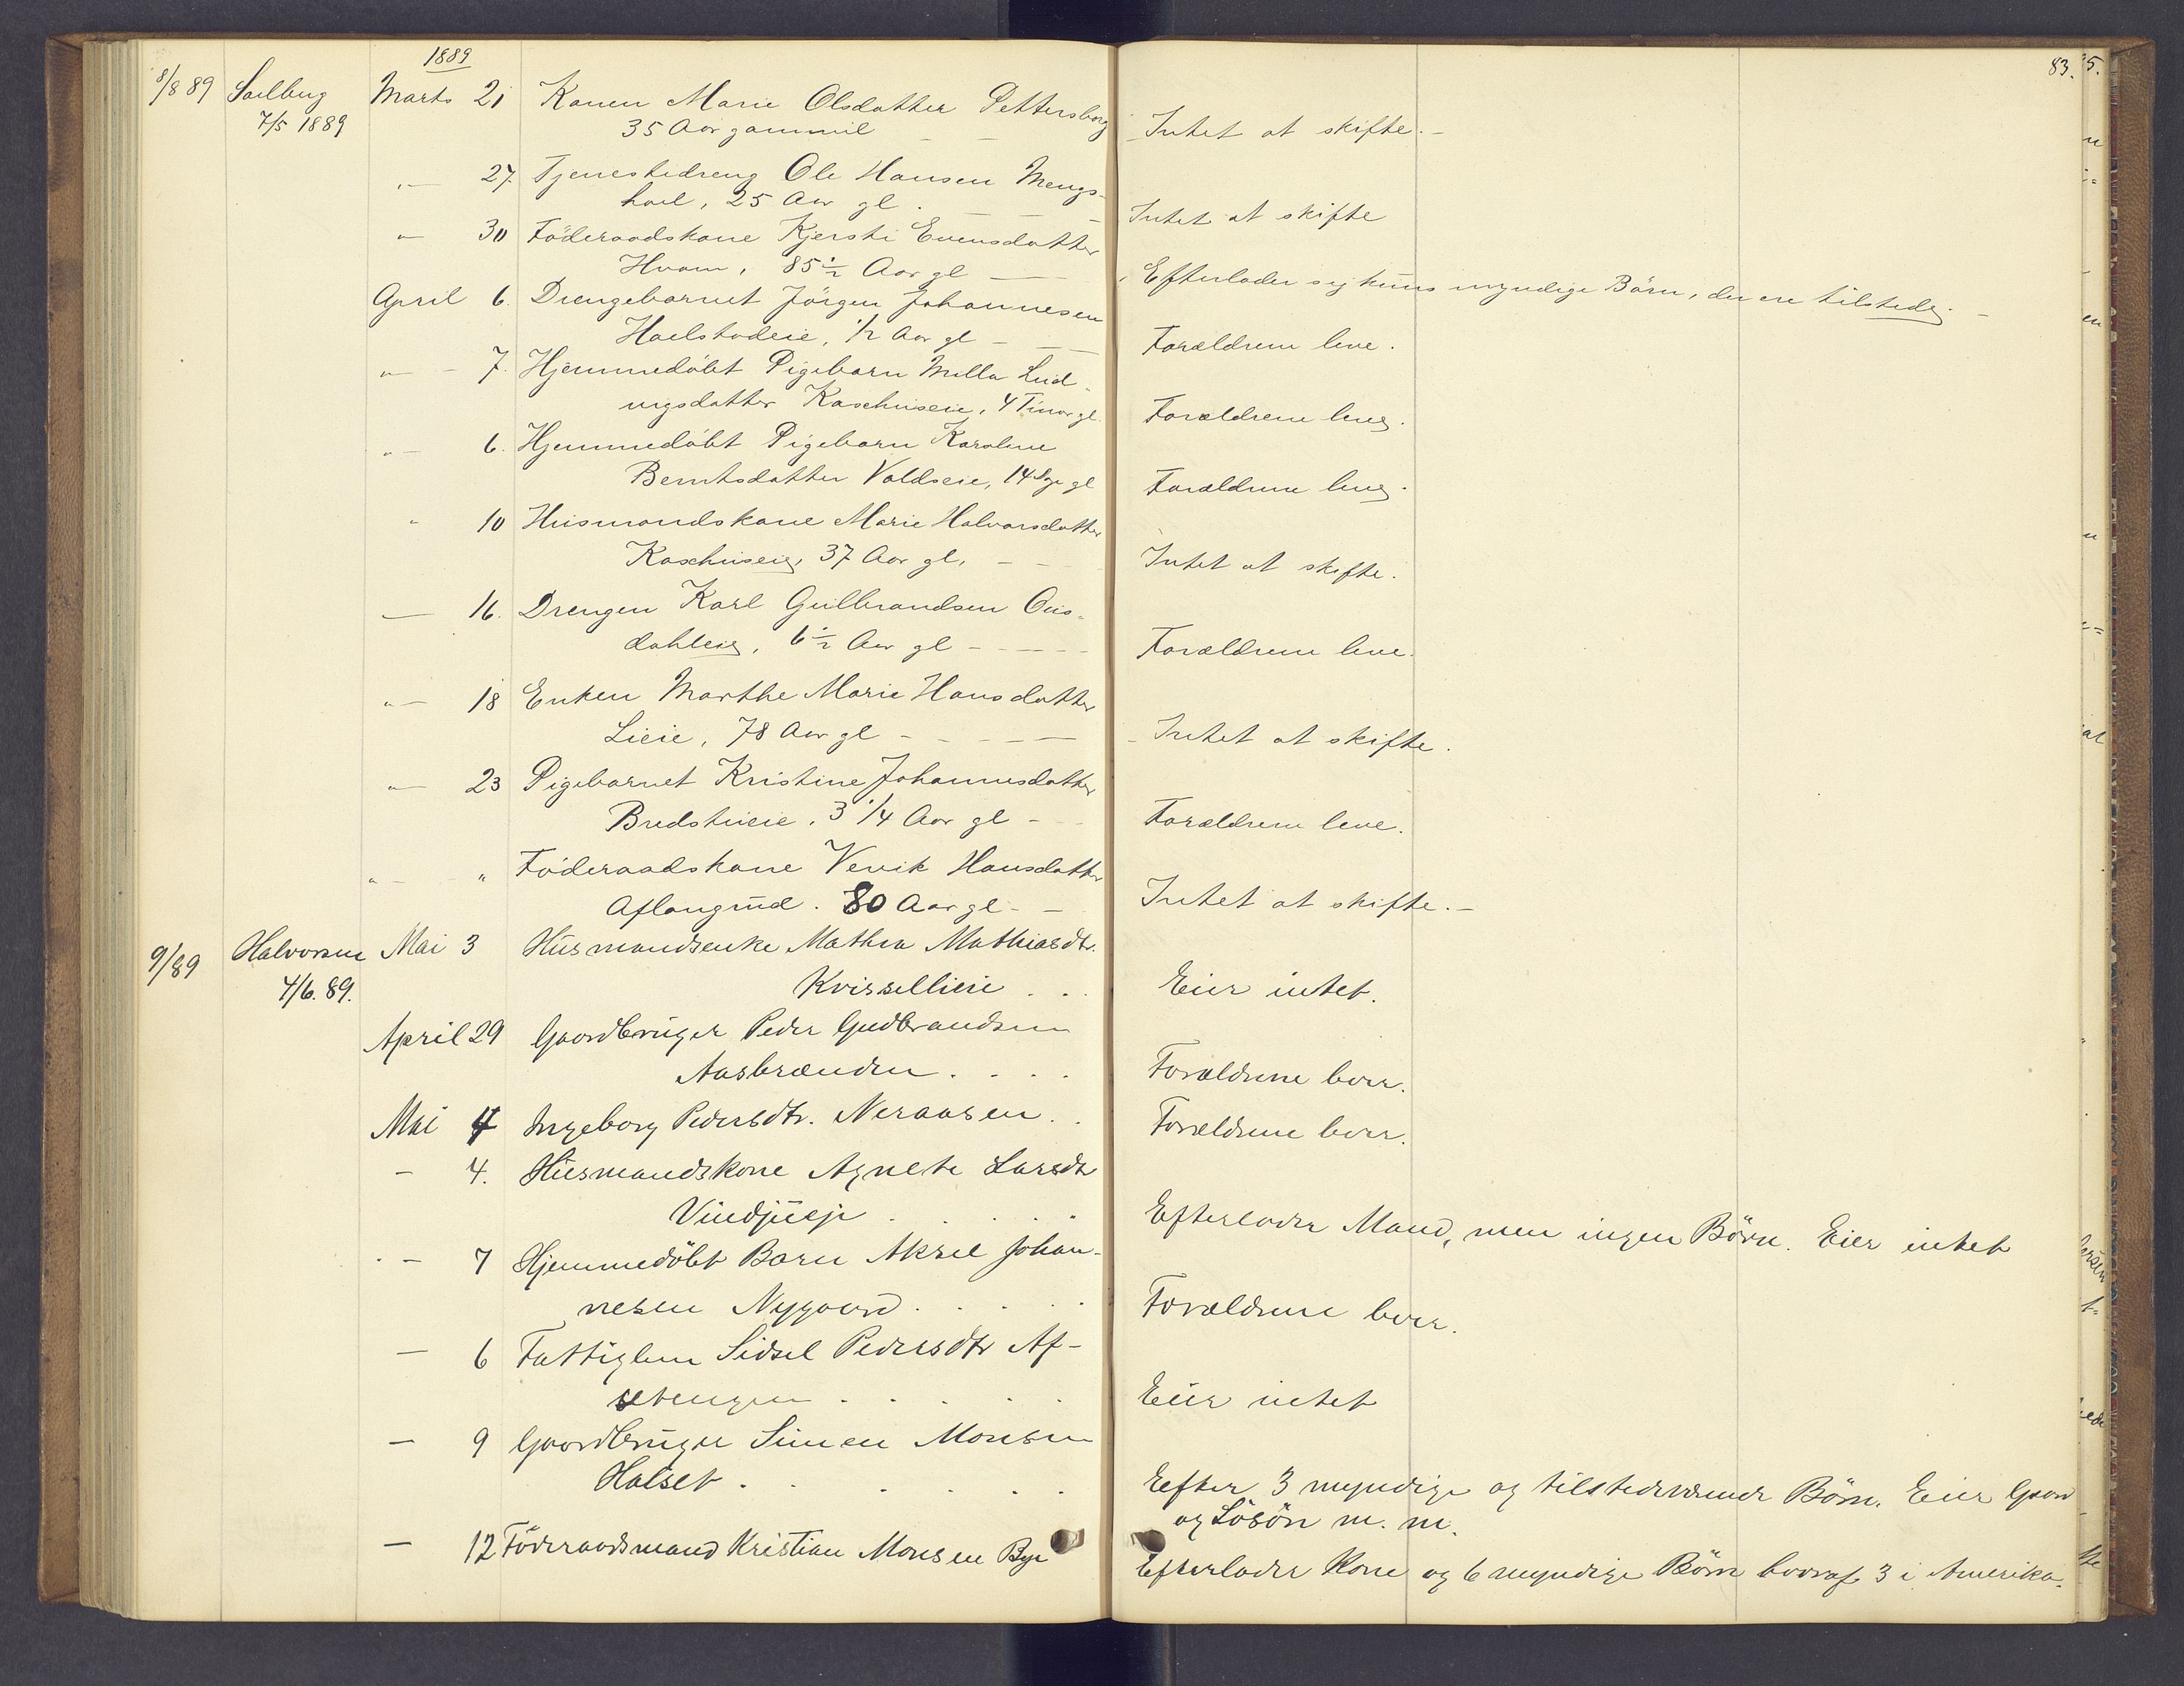 1889
83.
8/8 89 Sailberg Marts 21 Konen Marie Olsdatter Pettersborg
7/5 1889 35 Aar gammel Intet at skifte.
" 27. Tjenestedreng Ole Hansen Mengs-
hoel, 25 Aar gl. Intet at skifte
" 30 Föderaadskone Kjersti Evensdatter
Hvam, 85½ Aar gl Efterlader sig kuns myndige Börn, der ere tilstede.
April 6. Drengebarnet Jörgen Johannesen
Hoelstadeie, ½ Aar gl Forældrene leve.
" 7. Hjemmedöbt Pigebarn Milla Lud-
vigsdatter Kaschuseie, 4 Timer gl. Forældrene leve.
" 6. Hjemmedöbt Pigebarn Karoline
Berntsdatter Voldseie, 14 Dge gl Forældrene leve.
" 10 Husmandskone Marie Halvorsdatter
Kaschuseie, 37 Aar gl. Intet at skifte.
— 16. Drengen Karl Gulbrandsen Ous-
dahleie, 6½ Aar gl Forældrene leve.
" 18 Enken Marthe Marie Hansdatter
Lieie, 78 Aar gl Intet at skifte.
" 23 Pigebarnet Kristine Johannesdatter
Bredstueie, 3 1/4 Aar gl Forældrene leve.
" " Föderaadskone Venik Hansdatter
Aflangrud. 80 Aar gl Intet at skifte.
9/89 Halvorsen Mai 3 Husmandsenke Mathea Mathiasdtr.
4/6. 89. Kvissellieie Eier intet.
April 29 Gaardbruger Peder Gudbrandsen
Aasbrænden Forældrene lever.
Mai 4 Ingeborg Pedersdtr. Neraasen Forældrene lever.
— 4. Husmandskone Agnete Larsdtr
Vindjueje Efterlader Mand, men ingen Börn. Eier intet
— 7 Hjemmedöbt Barn Aksel Johan-
nesen Nygaard Forældrene lever.
— 6 Fattiglem Sidsel Pedersdtr Af-
setengen Eier intet
— 9 Gaardbruger Simen Monsen
Halset Eefter 3 myndige og tilstedeværende Börn. Eier Gaard
og Lösöre m. m.
— 12 Föderaadsmand Kristian Monsen Bye Efterlader Kone og 6 myndige Börn hvoraf 3 i Amerika.